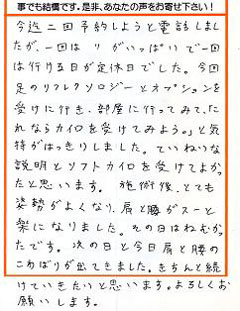 事でも結構です。是非、あなたの声をお寄せ下さい！
今迄二回予約しようと電話しまし
たが、一回は いがいっぱいで一回
は行ける日が定休日でした。今回
足のリフレクソロジーとオプションを
受けに行き、部屋に行ってみて、「こ
れならカイロを受けてみよう。」と気
持がはっきりしました。ていねいな
説明とソフトカイロを受けてよかっ
たと思います。 施術後、とても
姿勢がよくなり、肩と腰がスーと
楽になりました。その日はねむか
たです。 次の日と今日肩と腰の
こわばりが出てきました。きちんと続
けていきたいと思います。よろしくお
願いします。